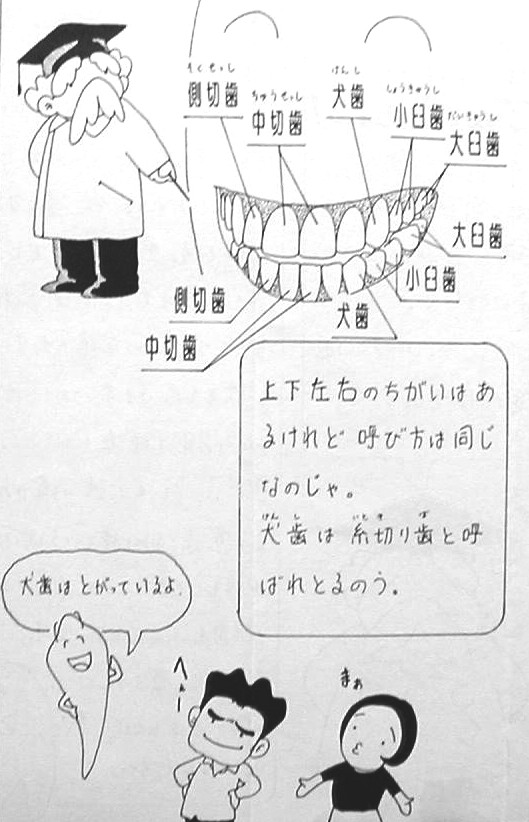 側切歯
そくせっし
中切歯
ちゅうせっし
犬歯
けんし
小臼歯
しょうきゅうし
大臼歯
だいきゅうし
大臼歯
小臼歯
犬歯
側切歯
中切歯
上下左右のちがいはあ
るけれど 呼び方は同じ
なのじゃ。
犬歯は糸切り歯と呼
けん し いと き ば
ばれとるのう。
犬歯はとがっているよ.
へぇー
まぁ